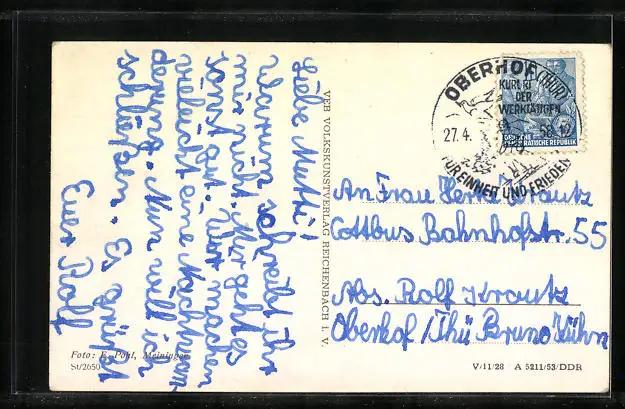 Liebe Mutti!
Warum schreibt Ihr
mir nicht. Mir geht es
sonst gut. Wir machen
vielleicht eine Nachtwan-
derung. Nun will ich
schließen. Es grüßt
Euer Rolf
VEB VOLKSKUNSTVERLAG REICHENBACH i. V.
OBERHOF (THÜR)
KURORT
DER
WERKTÄTIGEN
27.4. 58-12
FÜR EINHEIT UND FRIEDEN
DEUTSCHE
DEMOKRATISCHE REPUBLIK
An Frau Herta Krautz
Cottbus Bahnhofstr. 55
Abs. Rolf Krautz
Oberhof/Thü Bruno Kühn
Foto: E. Pohl, Meiningen
St/2650
V/11/28 A 5211/53/DDR